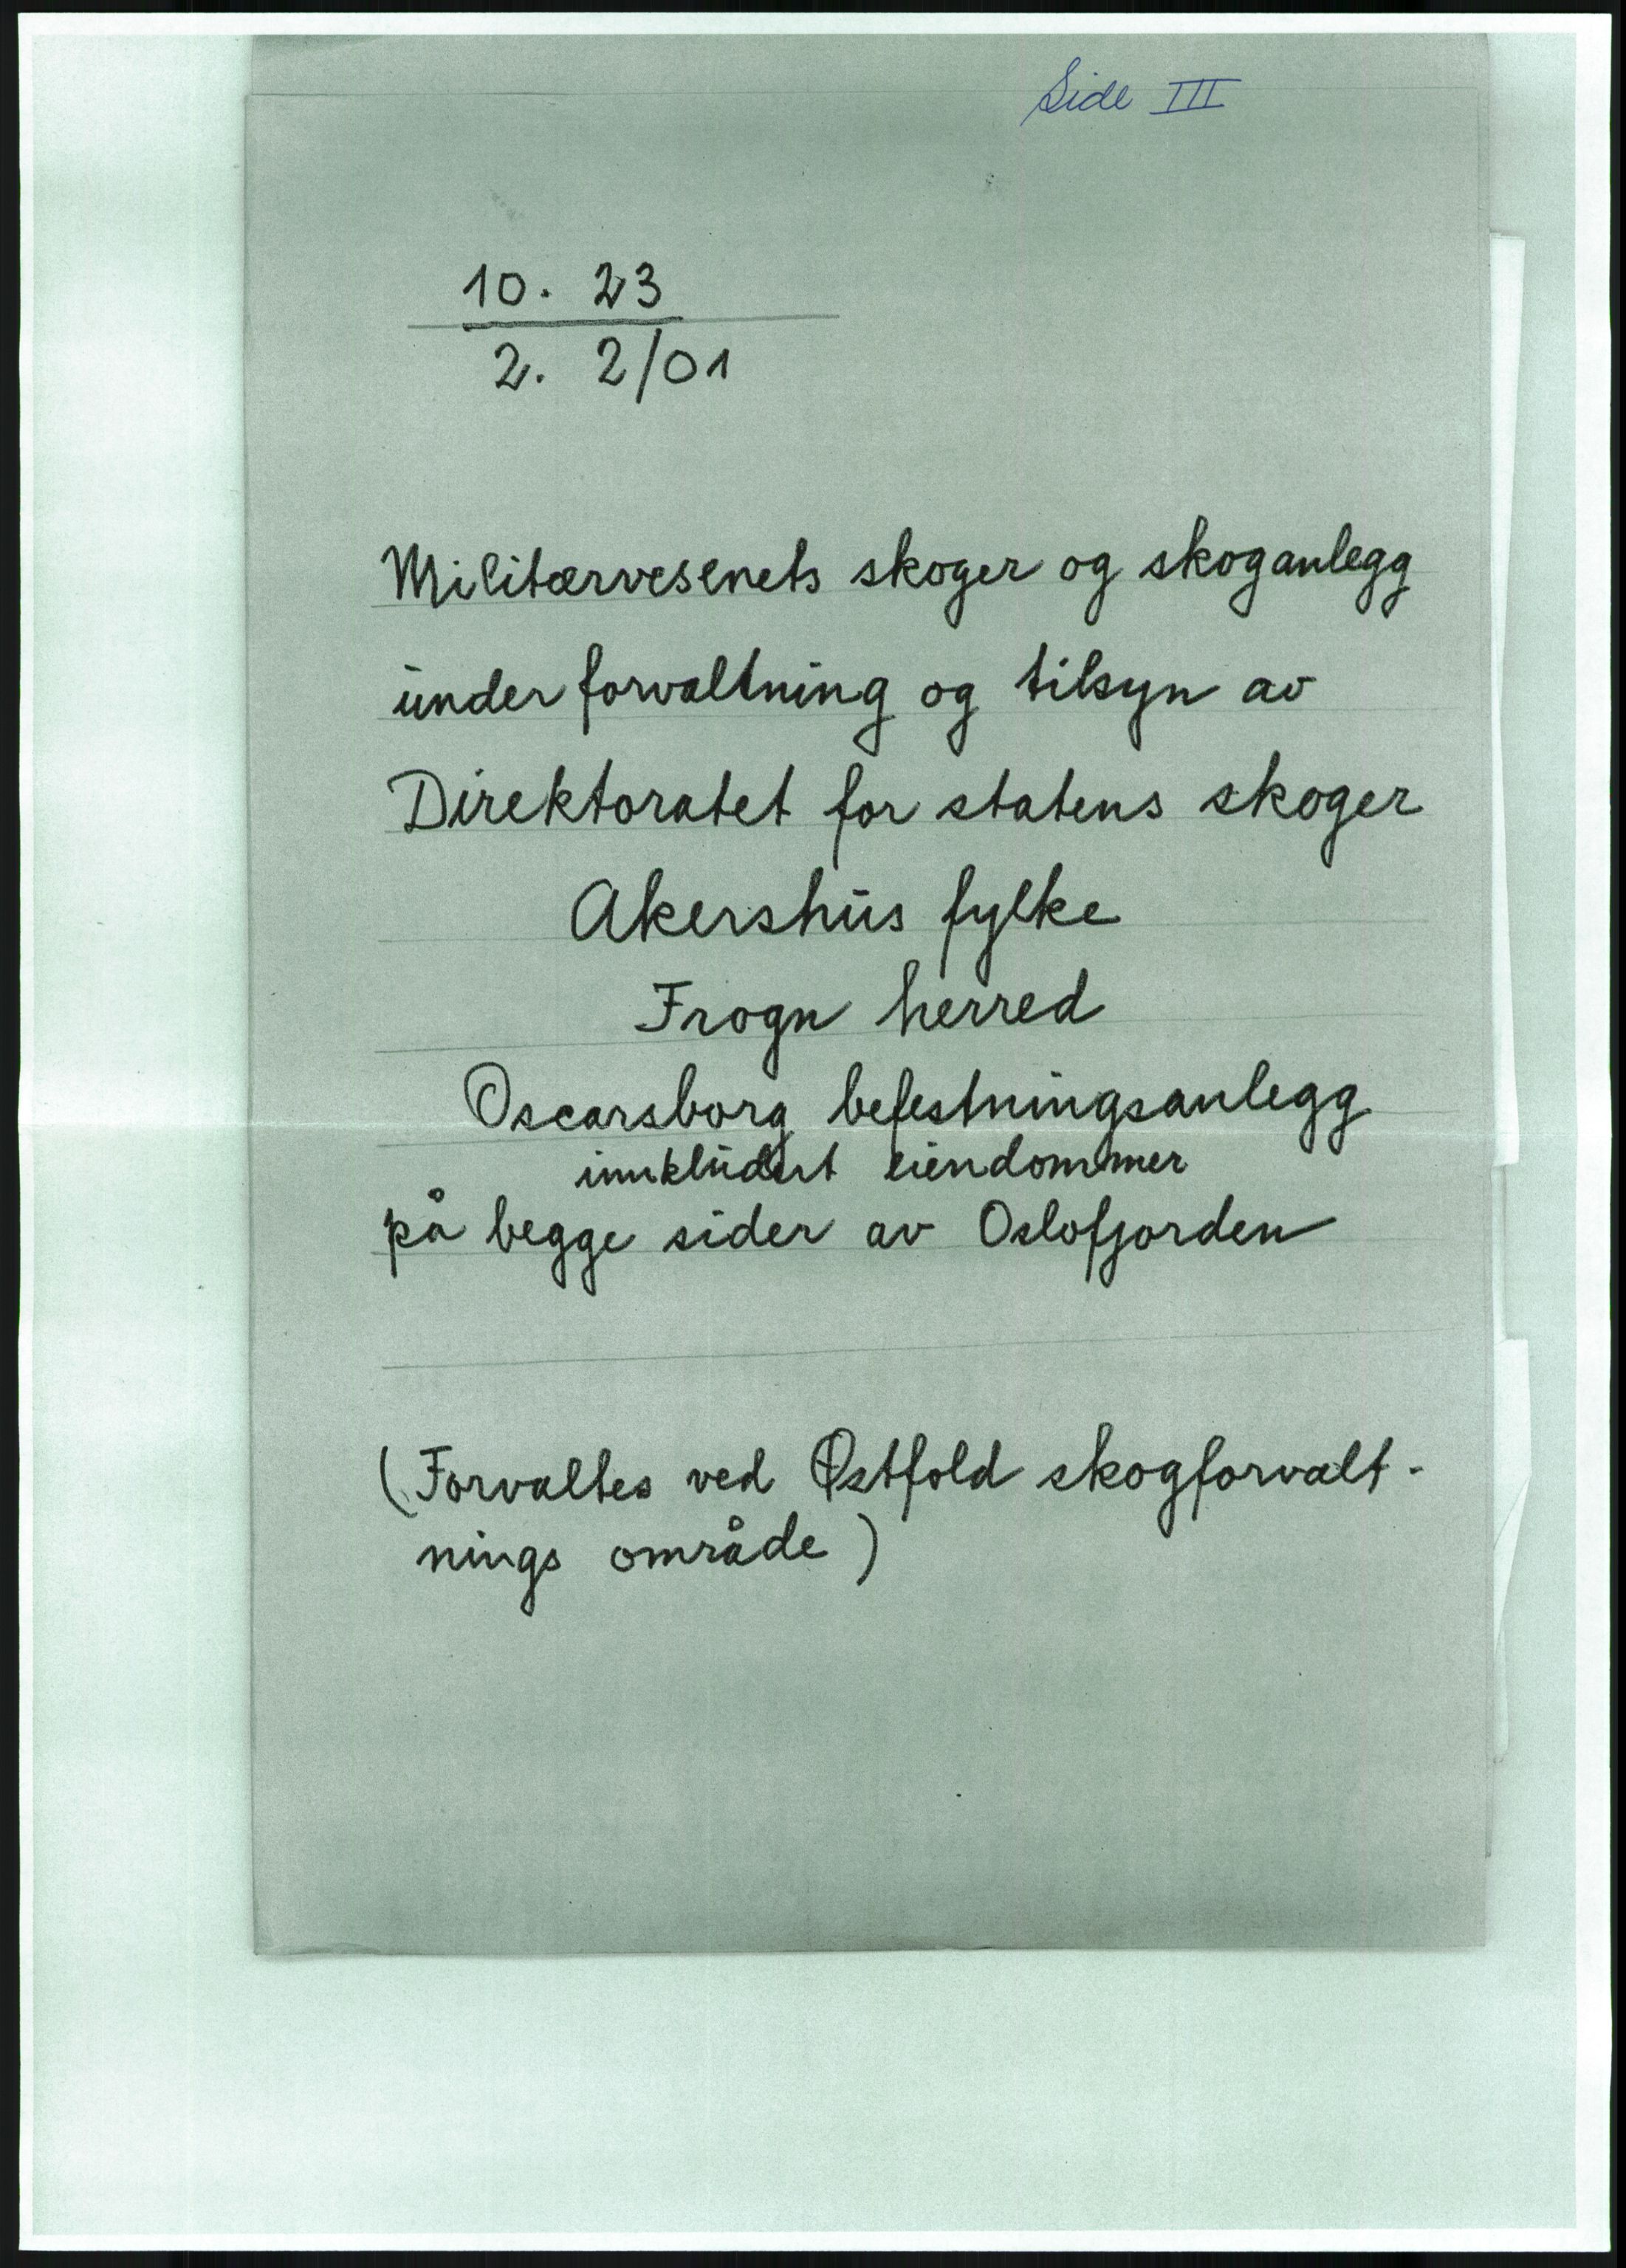 Side III
10. 23
2. 2/01
Militærvesenets skoger og skoganlegg
under forvaltning og tilsyn av
Direktoratet for statens skoger
Akershus fylke
Frogn herred
Oscarsborg befestningsanlegg
innkludert eiendommer
på begge sider av Oslofjorden
(Forvaltes ved Østfold skogforvalt-
nings område)